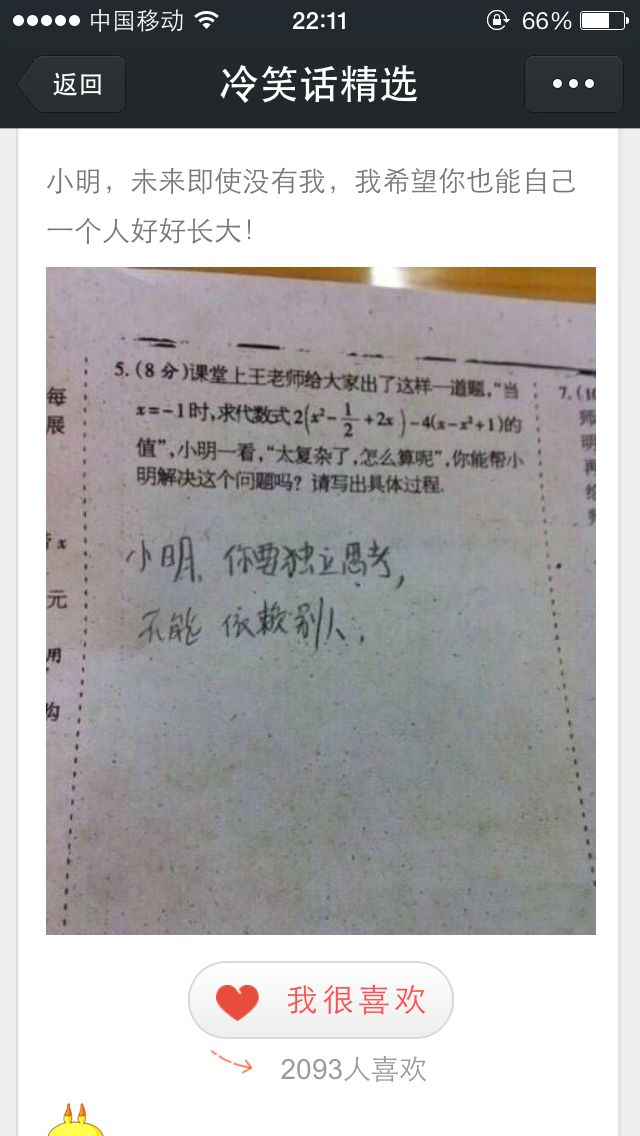 中国移动 22:11 66%
返回 冷笑话精选
小明，未来即使没有我，我希望你也能自己
一个人好好长大！
5.(8分)课堂上王老师给大家出了这样一道题,“当
x=-1时,求代数式2(x²-1/2+2x)-4(x-x²+1)的
值”,小明一看,“太复杂了,怎么算呢”,你能帮小
明解决这个问题吗？请写出具体过程.
小明、你要独立思考,
不能依赖别人.
每
展
x
元
用
构
7.(10
师
明
再
给
我很喜欢
2093人喜欢